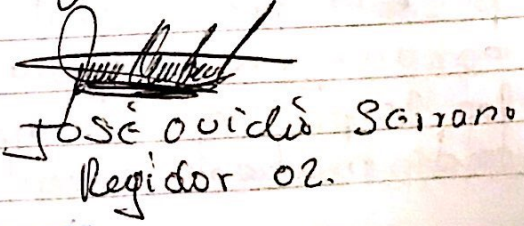 José Ovidio Serrano
Regidor 02.